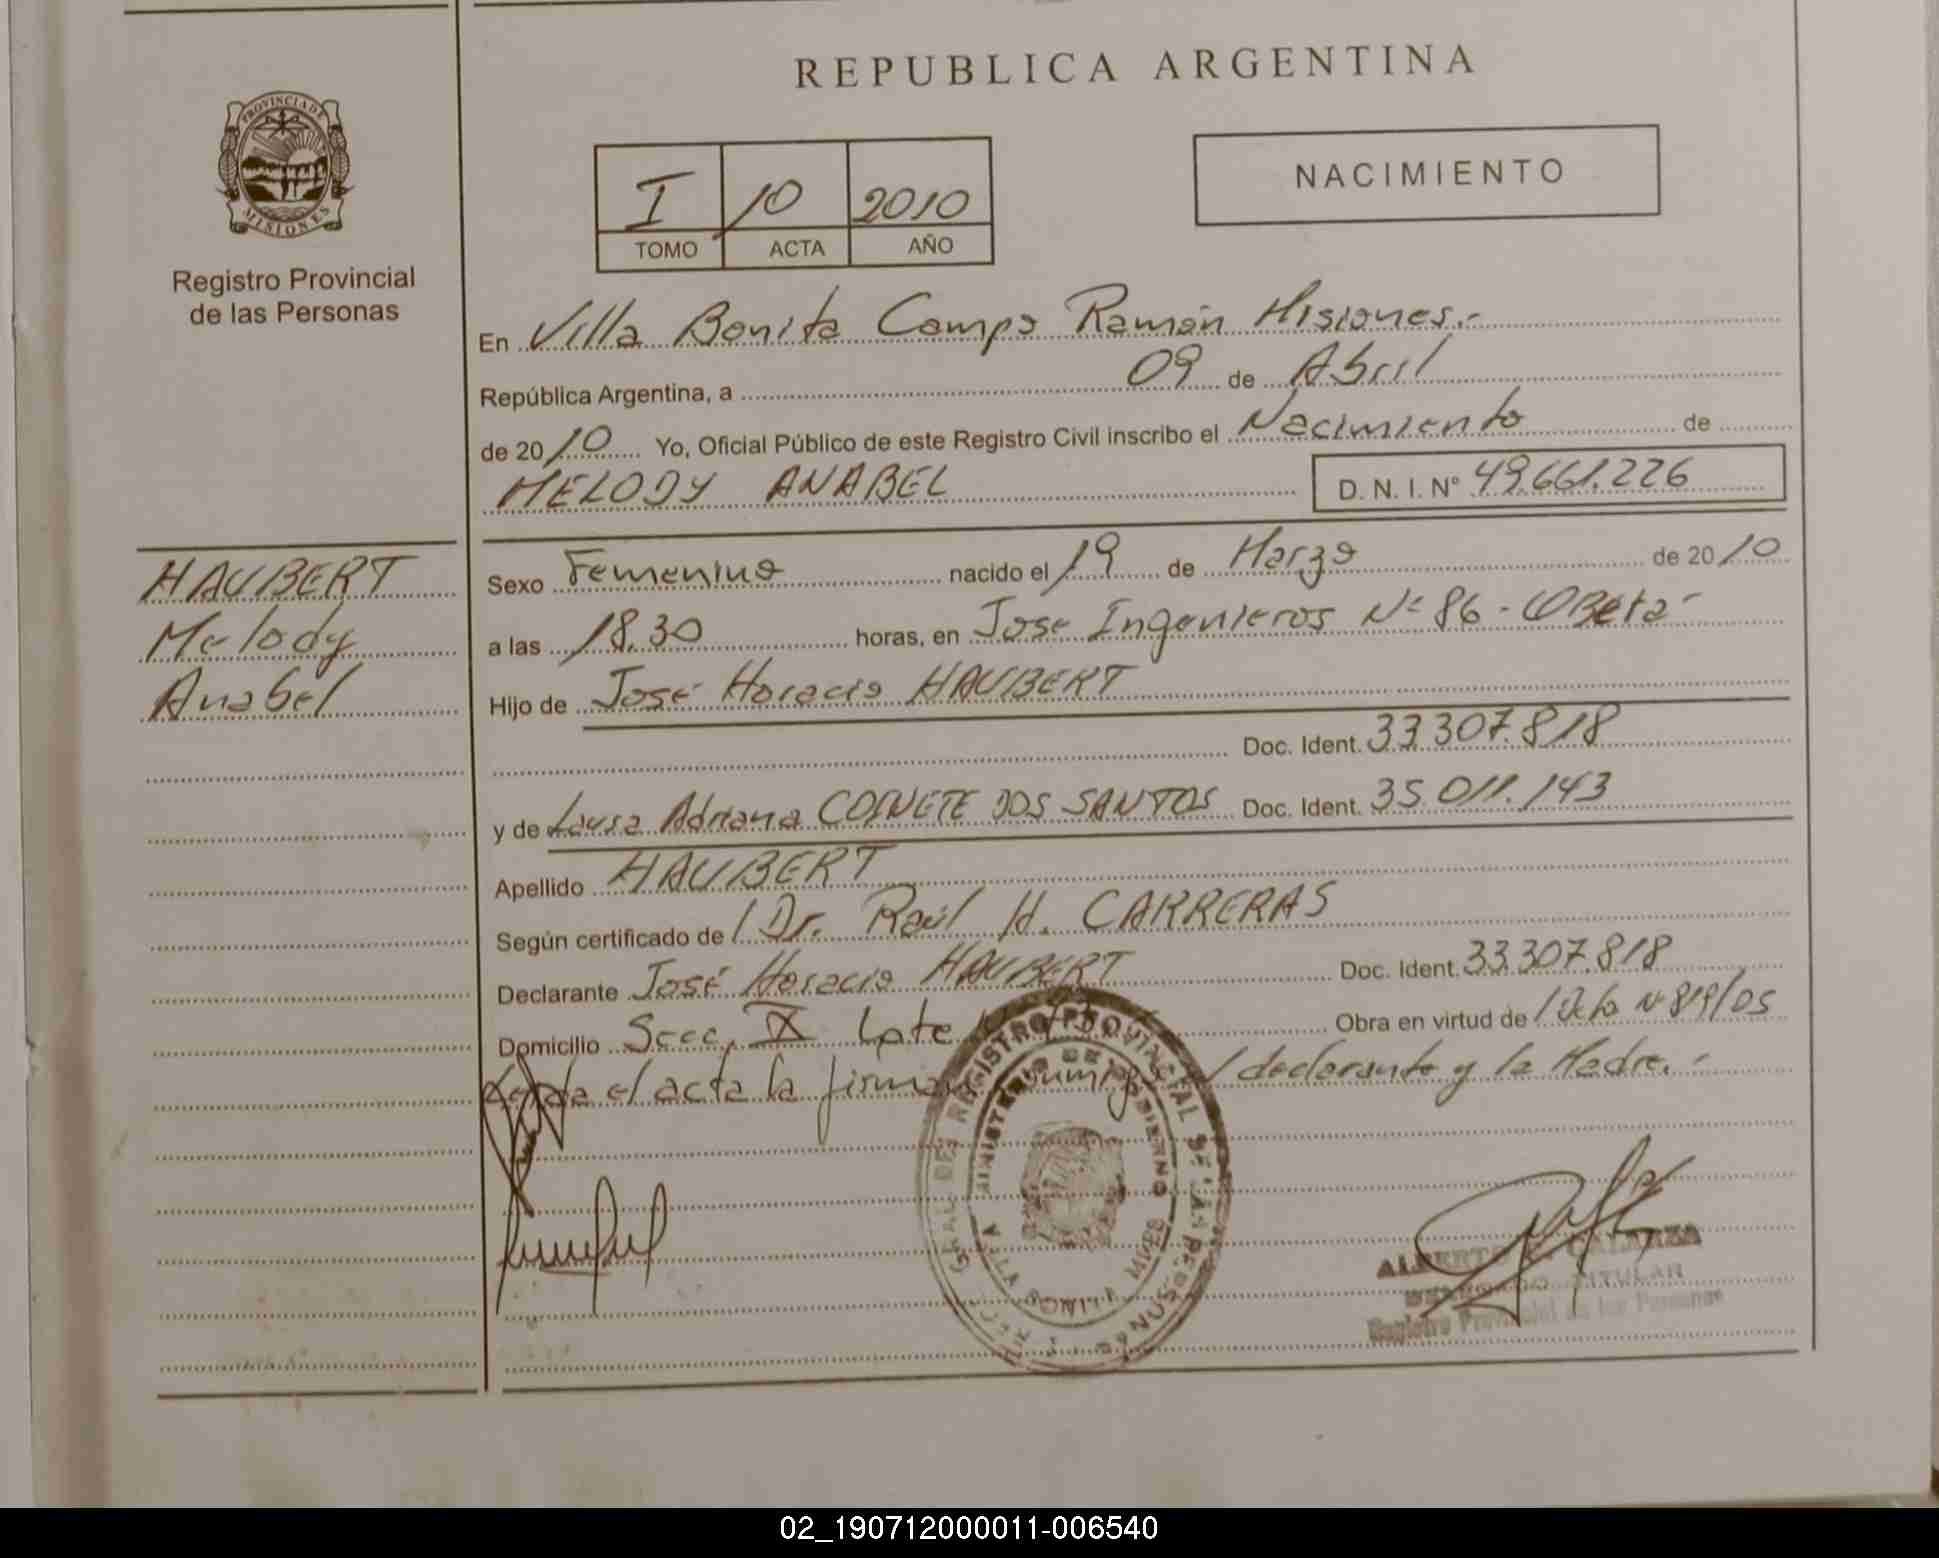 REPUBLICA ARGENTINA
PROVINCIA DE
MISIONES
Registro Provincial
de las Personas
I 10 2010
TOMO ACTA AÑO
NACIMIENTO
En Villa Bonita Campo Ramón Misiones.-
República Argentina, a 09 de Abril
de 2010 Yo, Oficial Público de este Registro Civil inscribo el Nacimiento de
MELODY ANABEL D. N. I. Nº 49.661.226
HAUBERT
Melody
Anabel
Sexo Femenino nacido el 19 de Marzo de 2010
a las 18.30 horas, en Jose Ingenieros Nº 86 - Oberá
Hijo de José Horacio HAUBERT
Doc. Ident. 33.307.818
y de Laura Adriana DOS SANTOS Doc. Ident. 35.011.143
Apellido HAUBERT
Según certificado de / Dr. Raúl H. CARRERAS
Declarante José Horacio HAUBERT Doc. Ident. 33.307.818
Domicilio Secc. IX Lote Obra en virtud de / Nº 819/05
el acta la firman / declarante y la Madre.-
REGISTRO PROVINCIAL DE LAS PERSONAS
MINISTERIO DE GOBIERNO
VILLA BONITA MNES
TITULAR
Registro Provincial de las Personas
02_190712000011-006540